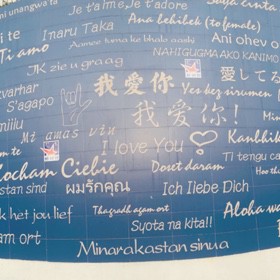 mi unangwa ta Je t'aime, Je t'adore Suga Cinta
ni te Inaru Taka Ana behibek (to female)
Ti amo Aamee tuma ke bhalo aashi Ani ohev o
IK zie u graag NAHIGUGMA AKO KANIMO
tvarhar 我愛你 Yes kez sirumen 愛して
S'agapo 我愛你!
Mi amas vin Kanbhik
I love You
Kocham Ciebie Doset daram Ti tengu ca
stan sind ผมรักคุณ Ich Liebe Dich
k het jou lief Thagradh agam ort Aloha wa
am ort Syota na kita!!
Minarakastan sinua